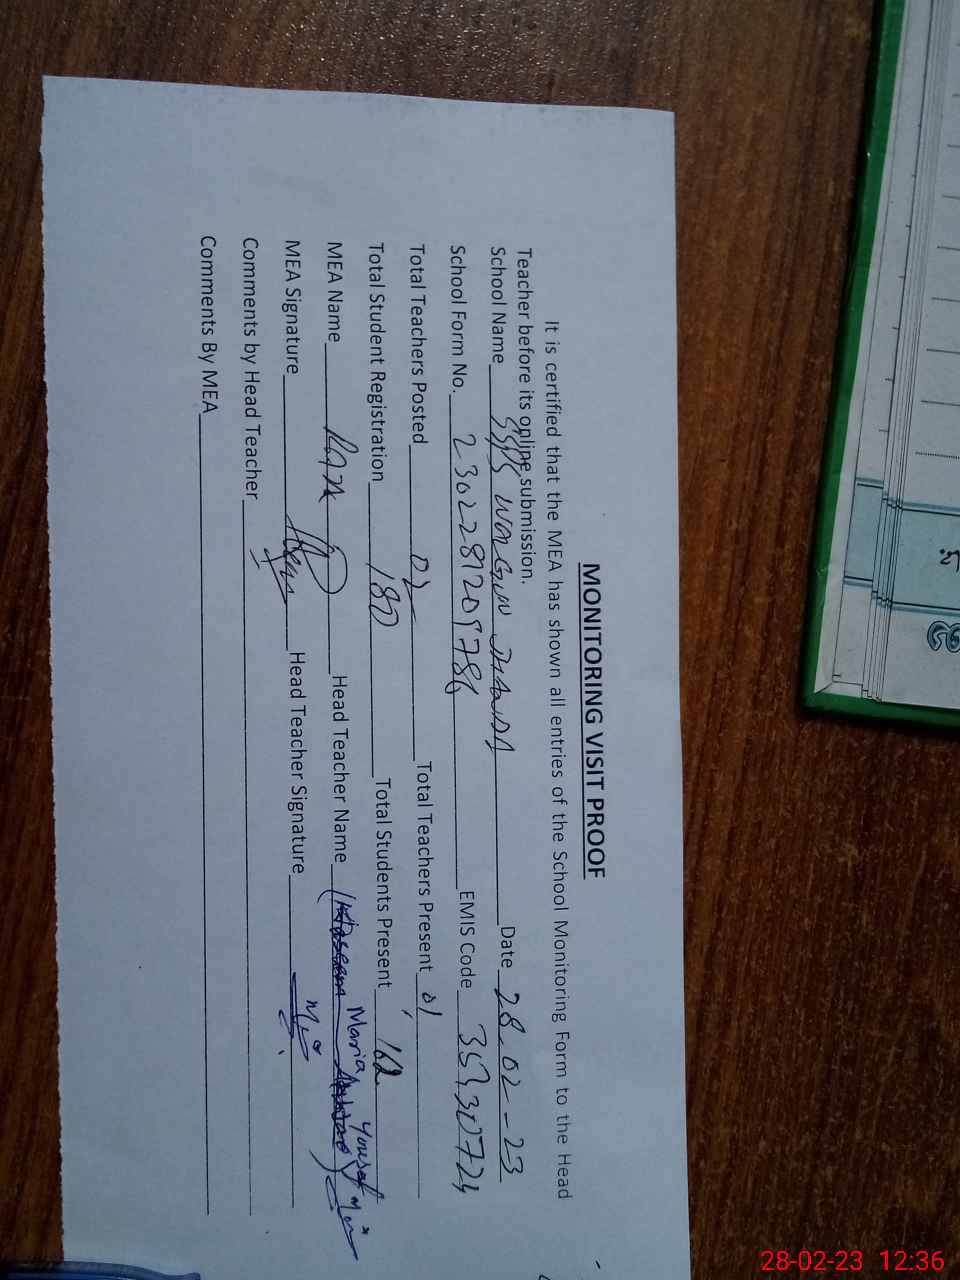 MONITORING VISIT PROOF
It is certified that the MEA has shown all entries of the School Monitoring Form to the Head
Teacher before its online submission.
School Name Date 28-02-23
School Form No. EMIS Code
Total Teachers Posted 02 Total Teachers Present 01
Total Student Registration 180 Total Students Present 162
MEA Name Head Teacher Name Maria Yousaf
MEA Signature Head Teacher Signature
Comments by Head Teacher
Comments By MEA
28-02-23 12:36